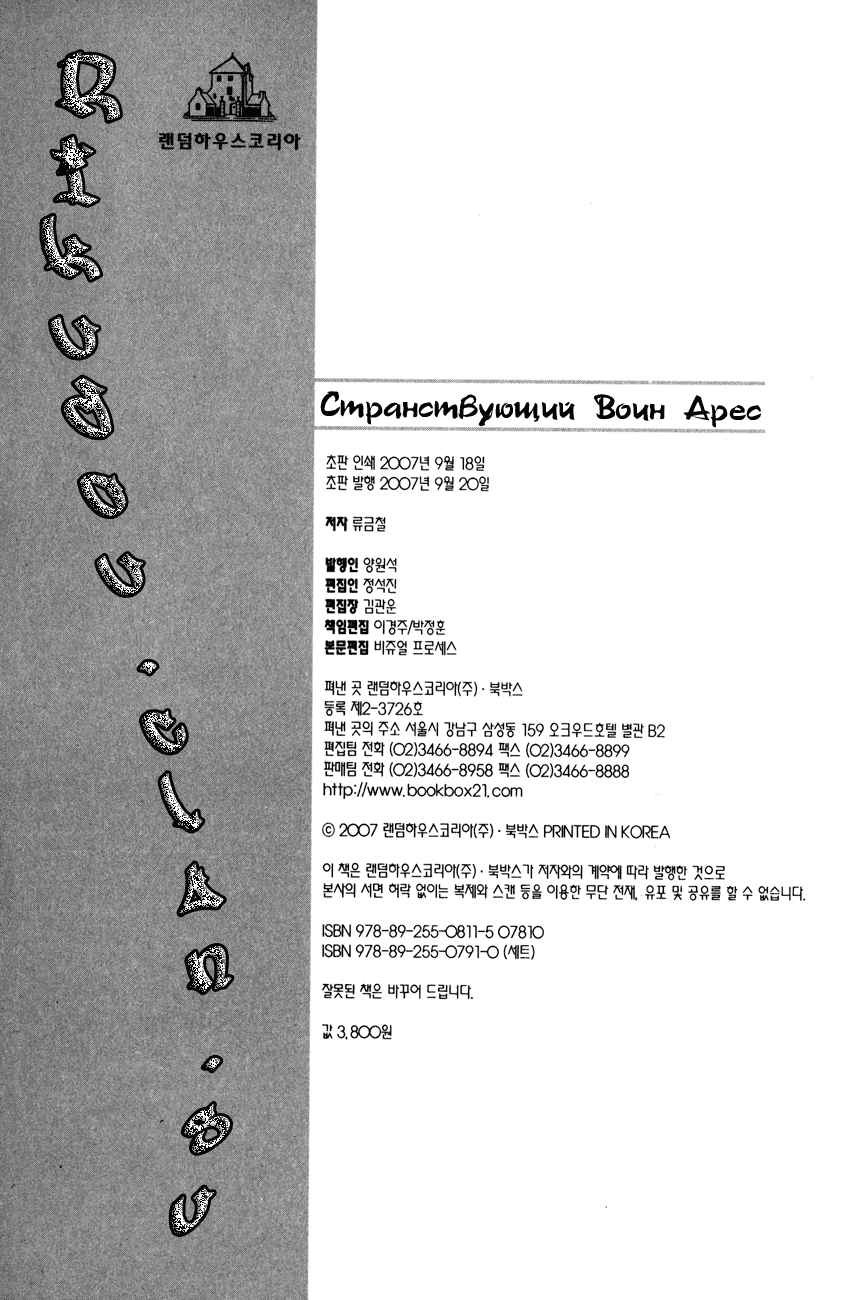 랜덤하우스코리아
Странствующий Воин Арес
초판 인쇄 2007년 9월 18일
초판 발행 2007년 9월 20일
저자 류금철
발행인 양원석
편집인 정석진
편집장 김관운
책임편집 이경주/박정훈
본문편집 비쥬얼 프로세스
펴낸 곳 랜덤하우스코리아(주)·북박스
등록 제2-3726호
펴낸 곳의 주소 서울시 강남구 삼성동 159 오크우드호텔 별관 B2
편집팀 전화 (02)3466-8894 팩스 (02)3466-8899
판매팀 전화 (02)3466-8958 팩스 (02)3466-8888
http://www.bookbox21.com
© 2007 랜덤하우스코리아(주)·북박스 PRINTED IN KOREA
이 책은 랜덤하우스코리아(주)·북박스가 저자와의 계약에 따라 발행한 것으로
본사의 서면 허락 없이는 복제와 스캔 등을 이용한 무단 전재, 유포 및 공유를 할 수 없습니다.
ISBN 978-89-255-0811-5 07810
ISBN 978-89-255-0791-0 (세트)
잘못된 책은 바꾸어 드립니다.
값 3,800원